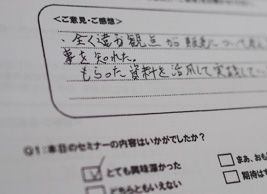 <ご意見・ご感想>
・全く違う観点から
事を知れた。
もらった資料を活用して実践して
Q1:本日のセミナーの内容はいかがでしたか?
とても興味深かった
まあ、おも
どちらともいえない
期待は